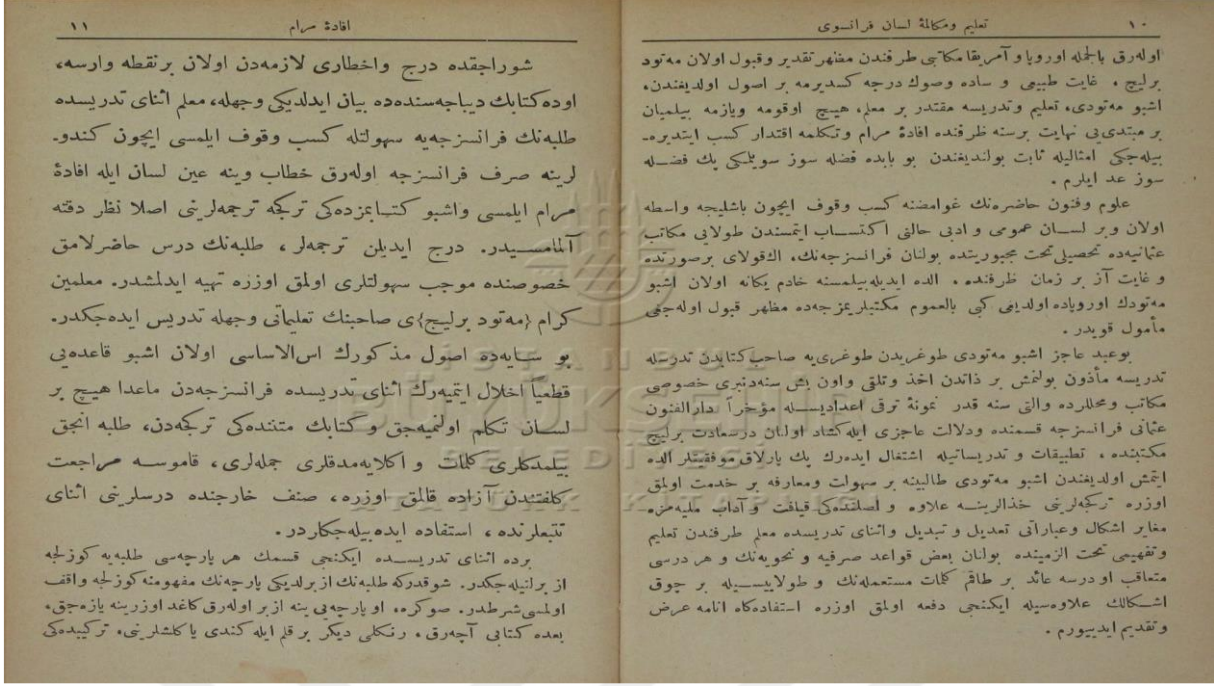 ١٠
تعليم ومكالمۀ لسان فرانسوى
اوله‌رق بالجمله اوروپا و آمريقا مكاتبى طرفندن مظهر تقدير وقبول اولان مه‌تود
برليچ . غايت طبيعى و ساده وصوك درجه كسديرمه بر اصول اولديغندن،
اشبو مه‌تودى، تعليم وتدريسه مقتدر بر معلم، هيچ اوقومه ويازمه بيلميان
بر مبتدى‌يى نهايت برسنه ظرفنده افادۀ مرام وتكلمه اقتدار كسب ايتديره‌ـ
بيله‌جكى امثاليله ثابت بولنديغندن بو بابده فضله سوز سويلمكى پك فضــله
سوز عد ايلرم .
علوم وفنون حاضره‌نك غوامضنه كسب وقوف ايچون باشليجه واسطه
اولان وبر لســان عمومى و ادبى حالنى اكتســاب ايتمسندن طولايى مكاتب
عثمانيه‌ده تحصيلى تحت مجبوريتده بولنان فرانسزجه‌نك، اك قولاى برصورتده
و غايت آز بر زمان ظرفنده ، الده ايديله‌بيلمسنه خادم يكانه اولان اشبو
مه‌تودك اوروپاده اولديغى كبى بالعموم مكتبلريمزجه‌ده مظهر قبول اوله‌جغى
مأمول قويدر .
بوعبد عاجز اشبو مه‌تودى طوغريدن طوغرى‌يه صاحب كتابدن تدرسله
تدريسه مأذون بولنمش بر ذاتدن اخذ وتلقى واون بش سنه‌دنبرى خصوصى
مكاتب ومحللرده والتى سنه قدر نمونۀ ترقى اعداديســله مؤخراً دارالفنون
عثمانى فرانسزجه قسمنده ودلالت عاجزى ايله كشاد اولنان درسعادت برليچ
مكتبنده ، تطبيقات و تدريساتيله اشتغال ايده‌رك پك پارلاق موفقيتلر الده
ايتمش اولديغندن اشبو مه‌تودى طالبينه بر سهولت ومعارفه بر خدمت اولمق
اوزره تركجه‌لرينى خذالرينــه علاوه و اصلنده‌كى قيافت و آداب مليه‌مزه
مغاير اشكال وعباراتى تعديل و تبديل واثناى تدريسده معلم طرفندن تعليم
وتفهيمى تحت الزمينده بولنان بعض قواعد صرفيه و نحويه‌نك و هر درسى
متعاقب او درسه عائد بر طاقم كلمات مستعمله‌نك و طولاييســيله بر چوق
اشــكالك علاوه‌سيله ايكنجى دفعه اولمق اوزره استفاده‌كاه انامه عرض
وتقديم ايدييورم .
افادۀ مرام
١١
شوراجقده درج واخطارى لازمه‌دن اولان برنقطه وارسه،
اوده كتابك ديباجه‌سنده‌ده بيان ايدلديكى وجهله، معلم اثناى تدريسده
طلبه‌نك فرانسزجه‌يه سهولتله كسب وقوف ايلمسى ايچون كندو‌ـ
لرينه صرف فرانسزجه اوله‌رق خطاب وينه عين لسان ايله افادۀ
مرام ايلمسى واشبو كتــابمزده‌كى تركجه ترجمه‌لرينى اصلا نظر دقته
آلمامســيدر. درج ايديلن ترجمه‌لر ، طلبه‌نك درس حاضرلامق
خصوصنده موجب سهولتلرى اولمق اوزره تهيه ايدلمشدر. معلمين
كرام (مه‌تود برليج)ى صاحبنك تعليماتى وجهله تدريس ايده‌جكدر.
بو ســايه‌ده اصول مذكورك اس‌الاساسى اولان اشبو قاعده‌يى
قطعياً اخلال ايتميه‌رك اثناى تدريسده فرانسزجه‌دن ماعدا هيچ بر
لســان تكلم اولنميه‌جق و كتابك متننده‌كى تركجه‌دن، طلبه انجق
بيلمدكلرى كلمات و اكلايه‌مدقلرى جمله‌لرى، قاموســه مراجعت
كلفتندن آزاده قالمق اوزره، صنف خارجنده درسلرينى اثناى
تتبعلرنده ، استفاده ايده‌بيله‌جكلردر .
برده اثناى تدريســده ايكنجى قسمك هر پارچه‌سى طلبه‌يه كوزلجه
ازبرلتيله‌جكدر. شوقدركه طلبه‌نك ازبرلديكى پارچه‌نك مفهومنه كوزلجه واقف
اولمسى شرطدر. صوكره، او پارچه‌يى ينه ازبر اوله‌رق كاغد اوزرينه يازه‌جق،
بعده كتابى آچه‌رق، رنكلى ديكر بر قلم ايله كندى ياكلشلرينى، تركيبده‌كى